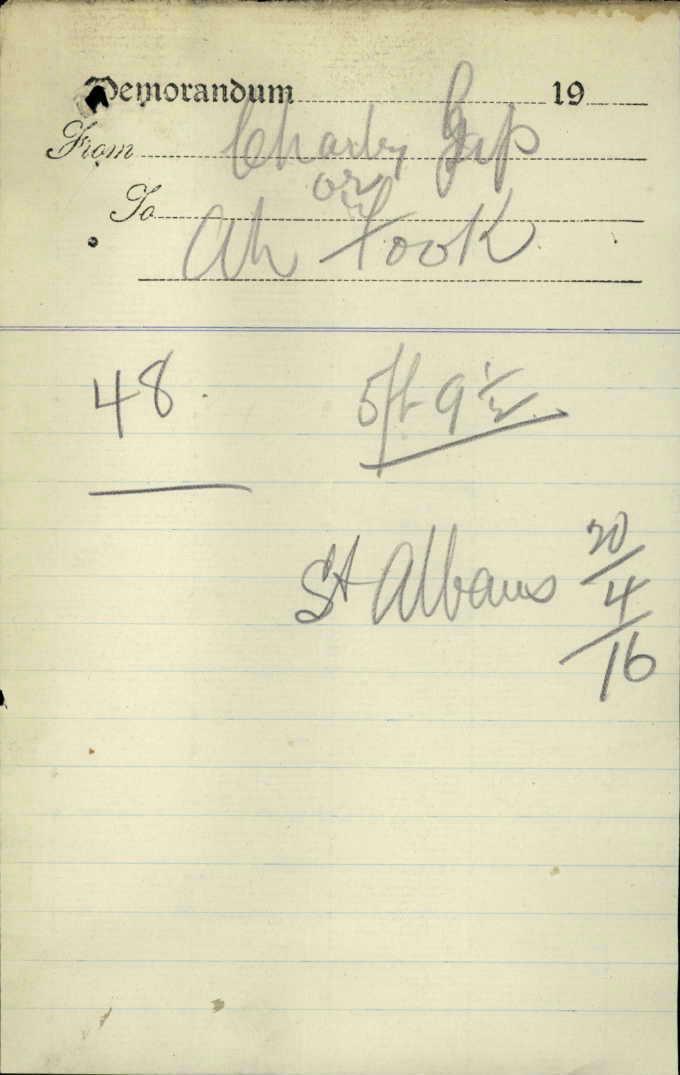 Memorandum 19
From Charley Gip
or
To Ah Fook
48. 5ft 9 1/2
St Albans 20/4/16